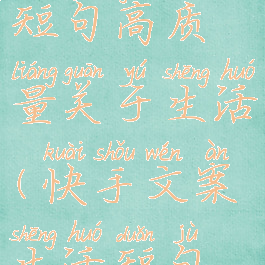 短句高质
liáng guān yú shēng huó
量关于生活
kuài shǒu wén àn
（快手文案
shēng huó duǎn jù
生活短句